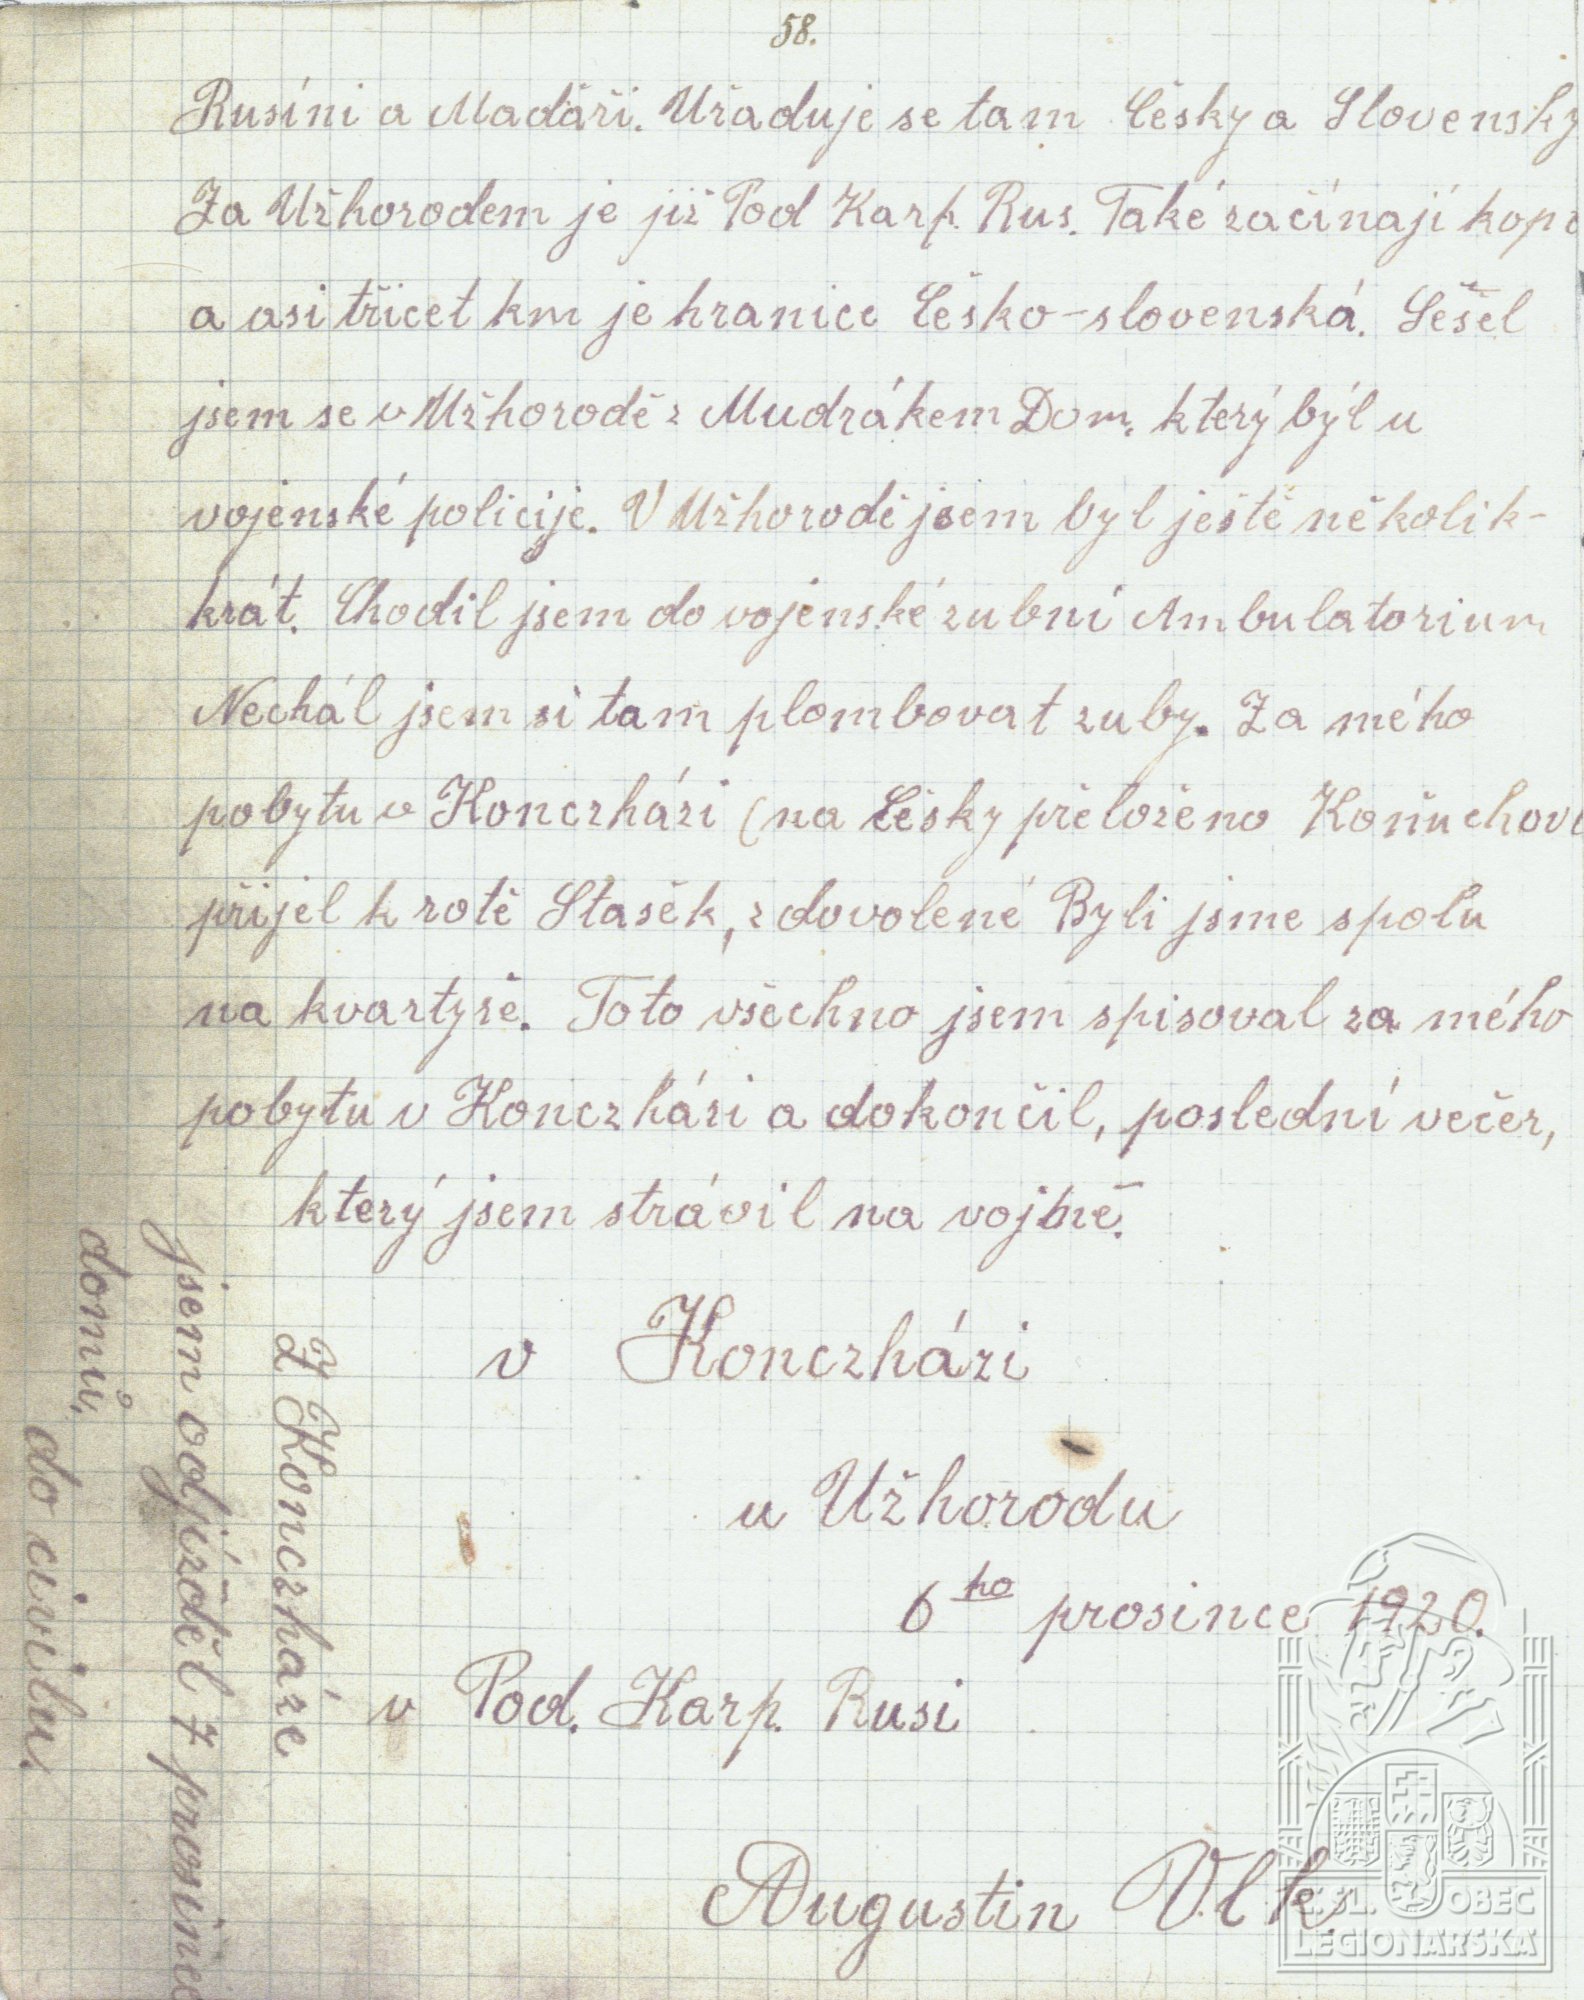 58.
Rusíni a Madáři. Uřaduje se tam Česky a Slovensky
Za Užhorodem je již Pod Karp. Rus. Také začínají kopc
a asi třicet km je hranice Česko-slovenská. Sešel
jsem se v Užhorodě z Mudrákem Dom. který býl u
vojenské policije. V Užhorodě jsem byl ještě několik-
krát. Chodil jsem do vojenské zubní Ambulatorium
Nechál jsem si tam plombovat zuby. Za mého
pobytu v Konczházi (na Česky přeloženo Koňuchov
přijel k rotě Stasěk, z dovolené Byli jsme spolu
na kvartyře. Toto všechno jsem spisoval za mého
pobytu v Konczházi a dokončil, poslední večer,
který jsem strávil na vojně.
v Konczházi
u Užhorodu
6ho prosince 1920.
v Pod. Karp. Rusi
Augustin Vlk.
Z Konczháze
jsem odjížděl 7 prosince
domů,
do civilu.
Č.SL. OBEC
LEGIONÁŘSKÁ